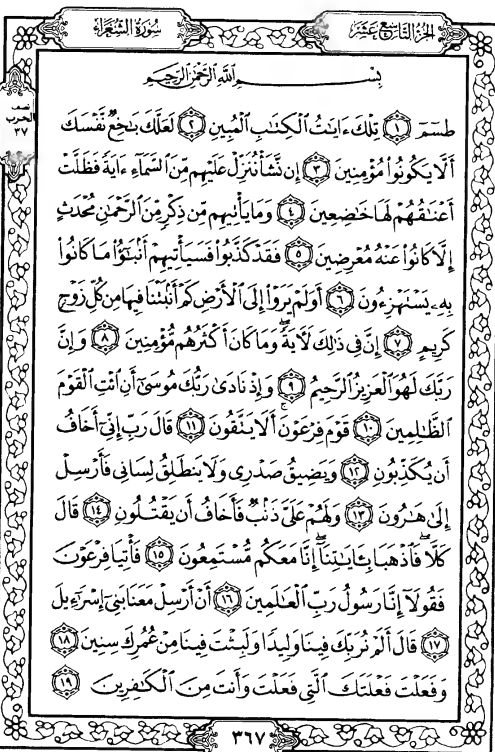 الجزء التاسع عشر
سورة الشعراء
نصف
الحزب
٣٧
بِسْمِ اللَّهِ الرَّحْمَٰنِ الرَّحِيمِ
طسٓمٓ ١ تِلْكَ ءَايَٰتُ الْكِتَٰبِ الْمُبِينِ ٢ لَعَلَّكَ بَٰخِعٌ نَّفْسَكَ
أَلَّا يَكُونُوا مُؤْمِنِينَ ٣ إِن نَّشَأْ نُنَزِّلْ عَلَيْهِم مِّنَ السَّمَآءِ ءَايَةً فَظَلَّتْ
أَعْنَٰقُهُمْ لَهَا خَٰضِعِينَ ٤ وَمَا يَأْتِيهِم مِّن ذِكْرٍ مِّنَ الرَّحْمَٰنِ مُحْدَثٍ
إِلَّا كَانُوا عَنْهُ مُعْرِضِينَ ٥ فَقَدْ كَذَّبُوا فَسَيَأْتِيهِمْ أَنۢبَٰٓؤُا مَا كَانُوا
بِهِۦ يَسْتَهْزِءُونَ ٦ أَوَلَمْ يَرَوْا إِلَى الْأَرْضِ كَمْ أَنۢبَتْنَا فِيهَا مِن كُلِّ زَوْجٍ
كَرِيمٍ ٧ إِنَّ فِى ذَٰلِكَ لَءَايَةً وَمَا كَانَ أَكْثَرُهُم مُّؤْمِنِينَ ٨ وَإِنَّ
رَبَّكَ لَهُوَ الْعَزِيزُ الرَّحِيمُ ٩ وَإِذْ نَادَىٰ رَبُّكَ مُوسَىٰٓ أَنِ ائْتِ الْقَوْمَ
الظَّٰلِمِينَ ١٠ قَوْمَ فِرْعَوْنَ أَلَا يَتَّقُونَ ١١ قَالَ رَبِّ إِنِّىٓ أَخَافُ
أَن يُكَذِّبُونِ ١٢ وَيَضِيقُ صَدْرِى وَلَا يَنطَلِقُ لِسَانِى فَأَرْسِلْ
إِلَىٰ هَٰرُونَ ١٣ وَلَهُمْ عَلَىَّ ذَنۢبٌ فَأَخَافُ أَن يَقْتُلُونِ ١٤ قَالَ
كَلَّا فَاذْهَبَا بِـَٔايَٰتِنَآ إِنَّا مَعَكُم مُّسْتَمِعُونَ ١٥ فَأْتِيَا فِرْعَوْنَ
فَقُولَآ إِنَّا رَسُولُ رَبِّ الْعَٰلَمِينَ ١٦ أَنْ أَرْسِلْ مَعَنَا بَنِىٓ إِسْرَٰٓءِيلَ
١٧ قَالَ أَلَمْ نُرَبِّكَ فِينَا وَلِيدًا وَلَبِثْتَ فِينَا مِنْ عُمُرِكَ سِنِينَ ١٨
وَفَعَلْتَ فَعْلَتَكَ الَّتِى فَعَلْتَ وَأَنتَ مِنَ الْكَٰفِرِينَ ١٩
٣٦٧